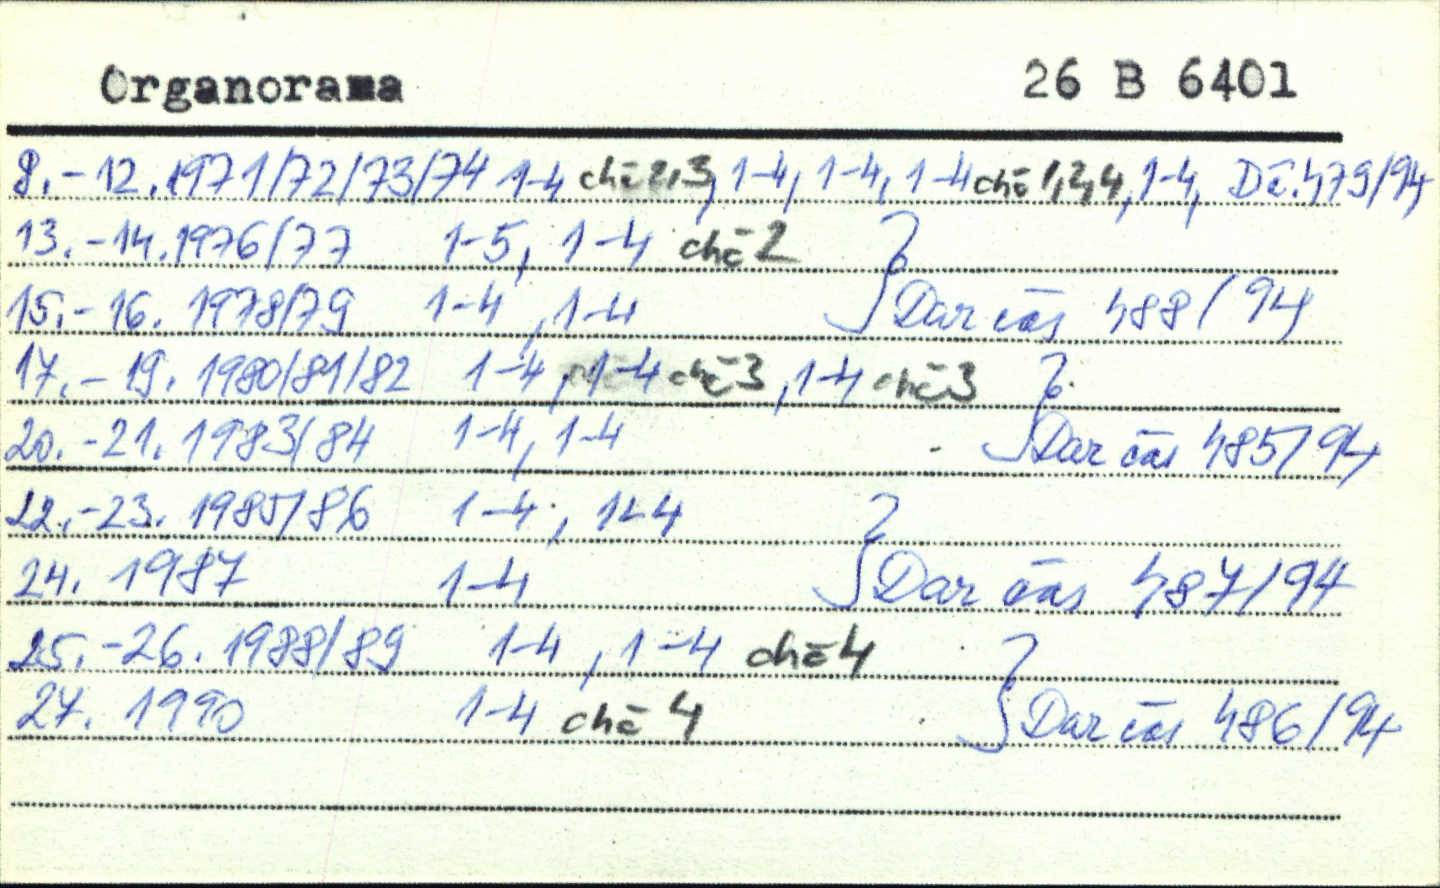 Organorama 26 B 6401
8.-12.1971/72/73/74 1-4 chč 2,3, 1-4, 1-4, 1-4 chč 1,2,4, 1-4, Dč. 479/94
13.-14.1976/77 1-5, 1-4 chč 2
15.-16. 1978/79 1-4, 1-4 } Dar čás 488/94
17.-19. 1980/81/82 1-4, 1-4 chč 3, 1-4 chč 3
20.-21. 1983/84 1-4, 1-4 } Dar čás 485/94
22.-23. 1985/86 1-4, 1-4
24. 1987 1-4 } Dar čás 487/94
25.-26. 1988/89 1-4, 1-4 chč 4
27. 1990 1-4 chč 4 } Dar čás 486/94